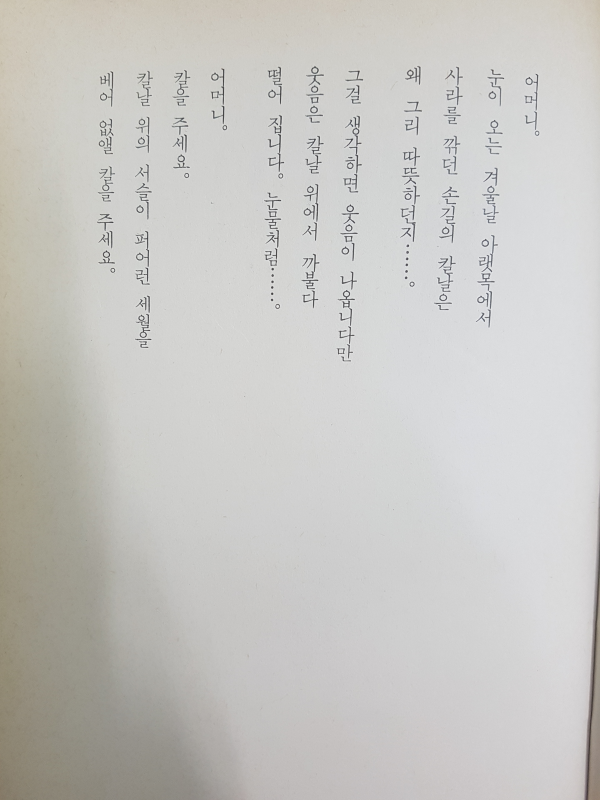 어머니。
눈이 오는 겨울날 아랫목에서
사라를 깎던 손길의 칼날은
왜 그리 따뜻하던지……。
그걸 생각하면 웃음이 나옵니다만
웃음은 칼날 위에서 까불다
떨어 집니다。눈물처럼……。
어머니。
칼을 주세요。
칼날 위의 서슬이 퍼어런 세월을
베어 없앨 칼을 주세요。